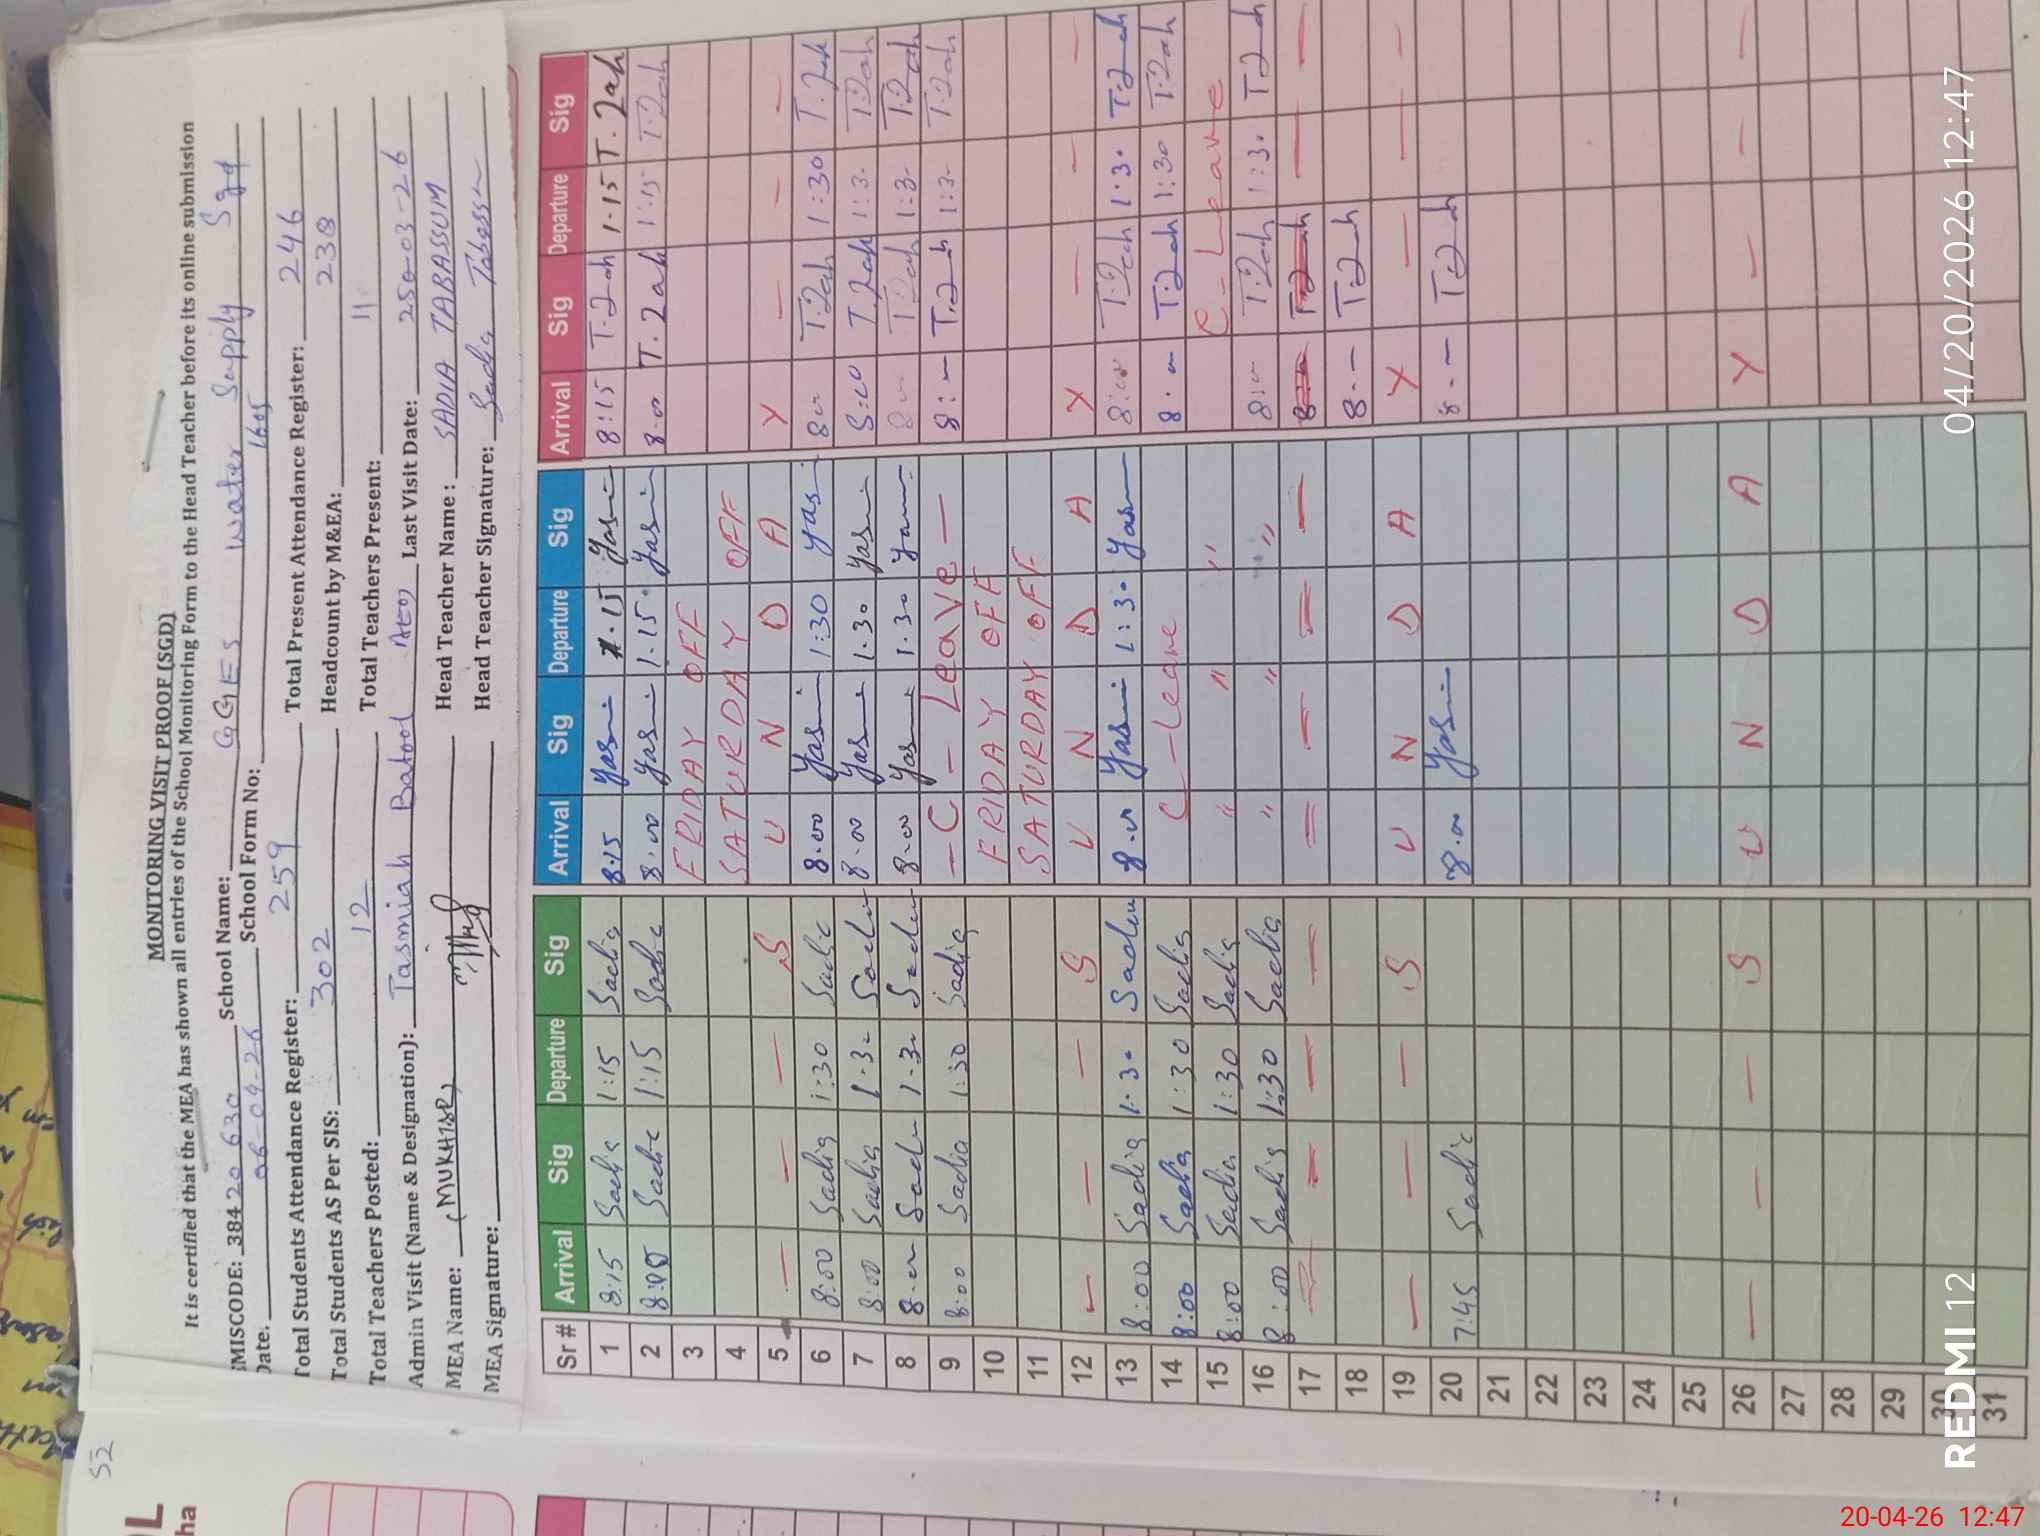 52
MONITORING VISIT PROOF (SGD)
It is certified that the MEA has shown all entries of the School Monitoring Form to the Head Teacher before its online submission
MISCODE: 38420630 School Name: GGES Water Supply Sgd
Date: 06-04-26 School Form No: 1605
Total Students Attendance Register: 259 Total Present Attendance Register: 246
Total Students AS Per SIS: 302 Headcount by M&EA: 238
Total Teachers Posted: 12 Total Teachers Present: 11
Admin Visit (Name & Designation): Tasmiah Batool AEO Last Visit Date: 03-26
MEA Name: (MUKHTAR) Head Teacher Name: SADIA TABASSUM
MEA Signature: Head Teacher Signature: Sadia Tabassum
Sr # Arrival Sig Departure Sig Arrival Sig Departure Sig Arrival Sig Departure Sig
1 8:15 Sadia 1:15 Sadia 8.15 Yasmi 1.15 Yasmi 8:15 T.2ah 1.15 T.2ah
2 Sadia 1:15 Sadia 8.00 Yasmi 1.15 Yasmi 8.00 T.2ah 1:15 T.2ah
3 FRIDAY OFF
4 SATURDAY OFF
5 — — — S U N D A Y — — —
6 8:00 Sadia 1:30 Sadia 8.00 Yasmi 1:30 Yasmi T.2ah 1:30 T.2ah
7 8:00 Sadia 1.30 Sadia 8.00 Yasmi 1.30 Yasmi 8:00 T.2ah 1:3. T.2ah
8 Sadia 1.3. Sadia 8.00 Yasmi 1.30 Yasmi T.2ah 1:3. T.2ah
9 8:00 Sadia 1:30 Sadia — C — Leave — 8:— T.2ah 1:3. T.2ah
10 FRIDAY OFF
11 SATURDAY OFF
12 — — — S U N D A Y — — —
13 8:00 Sadia 1.30 Sadia Yasmi 1:30 Yasmi 8:00 T.2ah 1:3. T.2ah
14 8:00 Sadia 1:30 Sadia C — Leave T.2ah 1:30 T.2ah
15 8:00 Sadia 1:30 Sadia " " " C — Leave
16 8:00 Sadia 1:30 Sadia " " " T.2ah 1:3. T.2ah
17 — — — — — — — T.2ah — —
18 8.— T.2ah
19 — — — S U N D A Y — — —
20 7:45 Sadia 8.00 Yasmi 8.— T.2ah
21
22
23
24
25
26 — — — S U N D A Y — — —
27
28
29
30
31
REDMI 12
04/20/2026 12:47
20-04-26 12:47